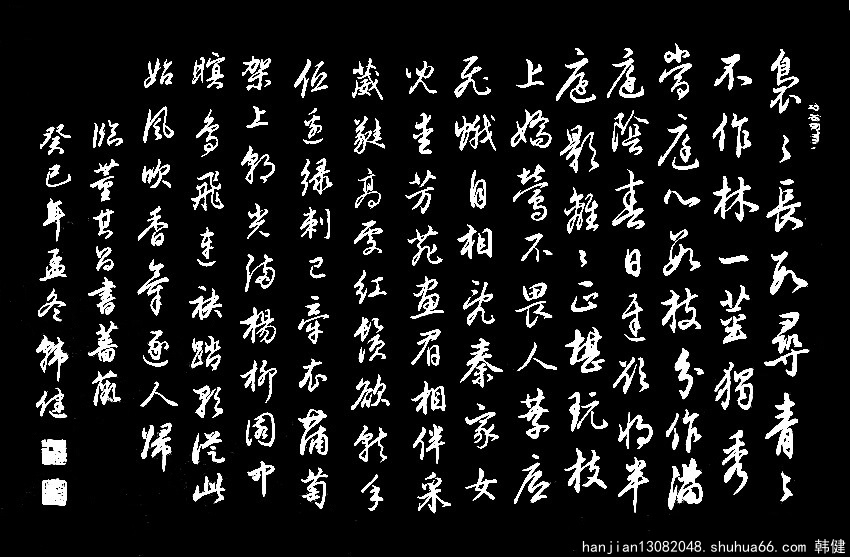 裊々長數尋青々
不作林一莖獨秀
當庭心數枝分作滿
庭陰春日遲欲將半
庭影離々正堪玩枝
上嬌鶯不畏人葉底
飛蛾自相亂秦家女
兒愛芳菲畫眉相伴采
葳蕤高處紅鬚欲就手
低邊綠刺已牽衣蒲萄
架上朝光滿楊柳園中
暝鳥飛連袂踏歌從此
始風吹香氣逐人歸
臨董其昌書薔薇
癸巳年孟冬韓健
hanjian13082048.shuhua66.com 韩健